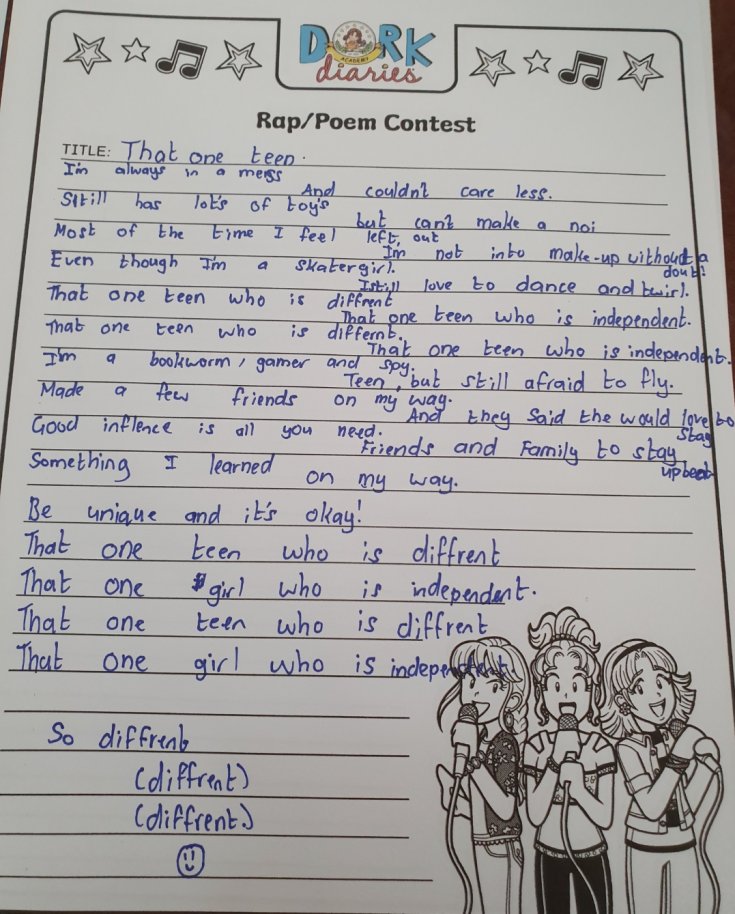 DORK
ACADEMY
diaries
Rap/Poem Contest
TITLE: That one teen.
I'm always in a mess
And couldn't care less.
Still has lot's of toy's
but can't make a noi
Most of the time I feel left, out
Im not into make-up without a
dout!
Even though I'm a skatergirl.
I still love to dance and twirl.
That one teen who is diffrent
That one teen who is independent.
That one teen who is differnt.
That one teen who is independent.
I'm a bookworm, gamer and spy.
Teen, but still afraid to fly.
Made a few friends on my way.
And they said the would love to
stay
Good inflence is all you need.
Friends and Family to stay
upbeat
Something I learned on my way.
Be unique and it's okay!
That one teen who is diffrent
That one girl who is independent.
That one teen who is diffrent
That one girl who is independent
So diffrent
(diffrent)
(diffrent.)